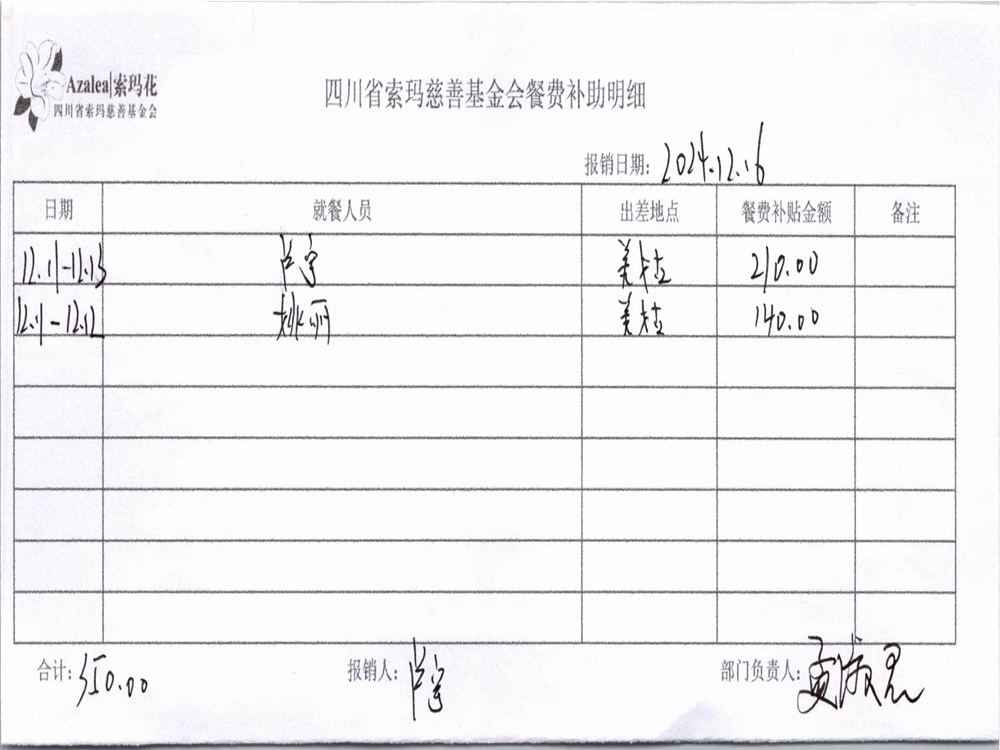 Azalea|索玛花
四川省索玛慈善基金会
四川省索玛慈善基金会餐费补助明细
报销日期: 2024.12.16
日期 就餐人员 出差地点 餐费补贴金额 备注
12.11-12.13 卢宇 美姑 210.00
12.11-12.12 姚丽 美姑 140.00
合计: 350.00 报销人: 卢宇 部门负责人: